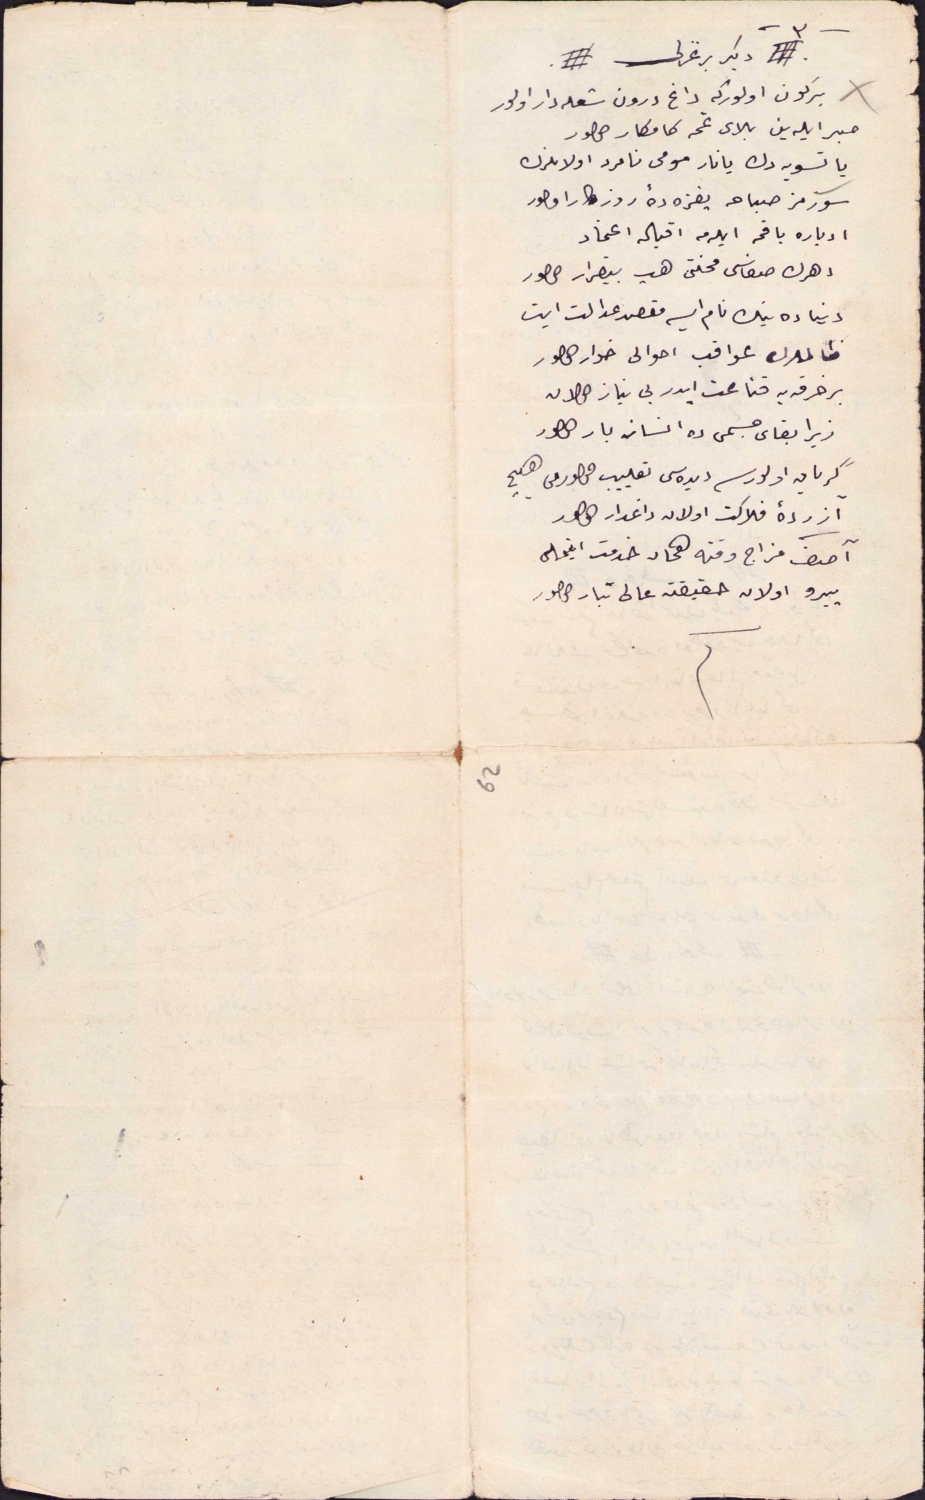 — ٣ —
# ديكر بر غزل #
بركون اولوركه داغ درون شعله‌دار اولور
صبر ايله‌ين بلاى غمه كامكار اولور
ياتسويه دك يانار مومى نامرد اولانلرك
سورمز صباحه
ادباره باقمه ايلمه اقباله اعتماد
دهرك صفاسى محنتى هپ بيقرار اولور
دنياده نيك نام ايسه مقصد عدالت ايت
ظالملرك عواقب احوالى خوار اولور
بر خرقه‌يه قناعت ايدر بى نياز اولان
زيرا بقاى جسمى ده انسانه بار اولور
گريان اولورسه ديده‌سى اولورمى هيچ
آزردهٔ فلاكت اولان داغدار اولور
آصف مزاج وقته خدمت
پيرو اولان حقيقته عالى تبار اولور
م
62